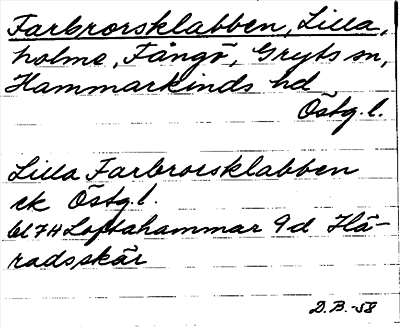 Farbrorsklabben, Lilla,
holme, Fångö, Gryts sn,
Hammarkinds hd
Östg. l.
Lilla Farbrorsklabben
ek Östg. l.
bl 7H Loftahammar 9d Hä-
radsskär
D.B.-58